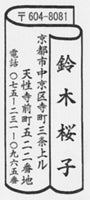 〒604-8081
京都市中京区寺町三条上ル
天性寺前町五二二番地
電話 〇七五-二三一-〇九六五番
鈴木桜子